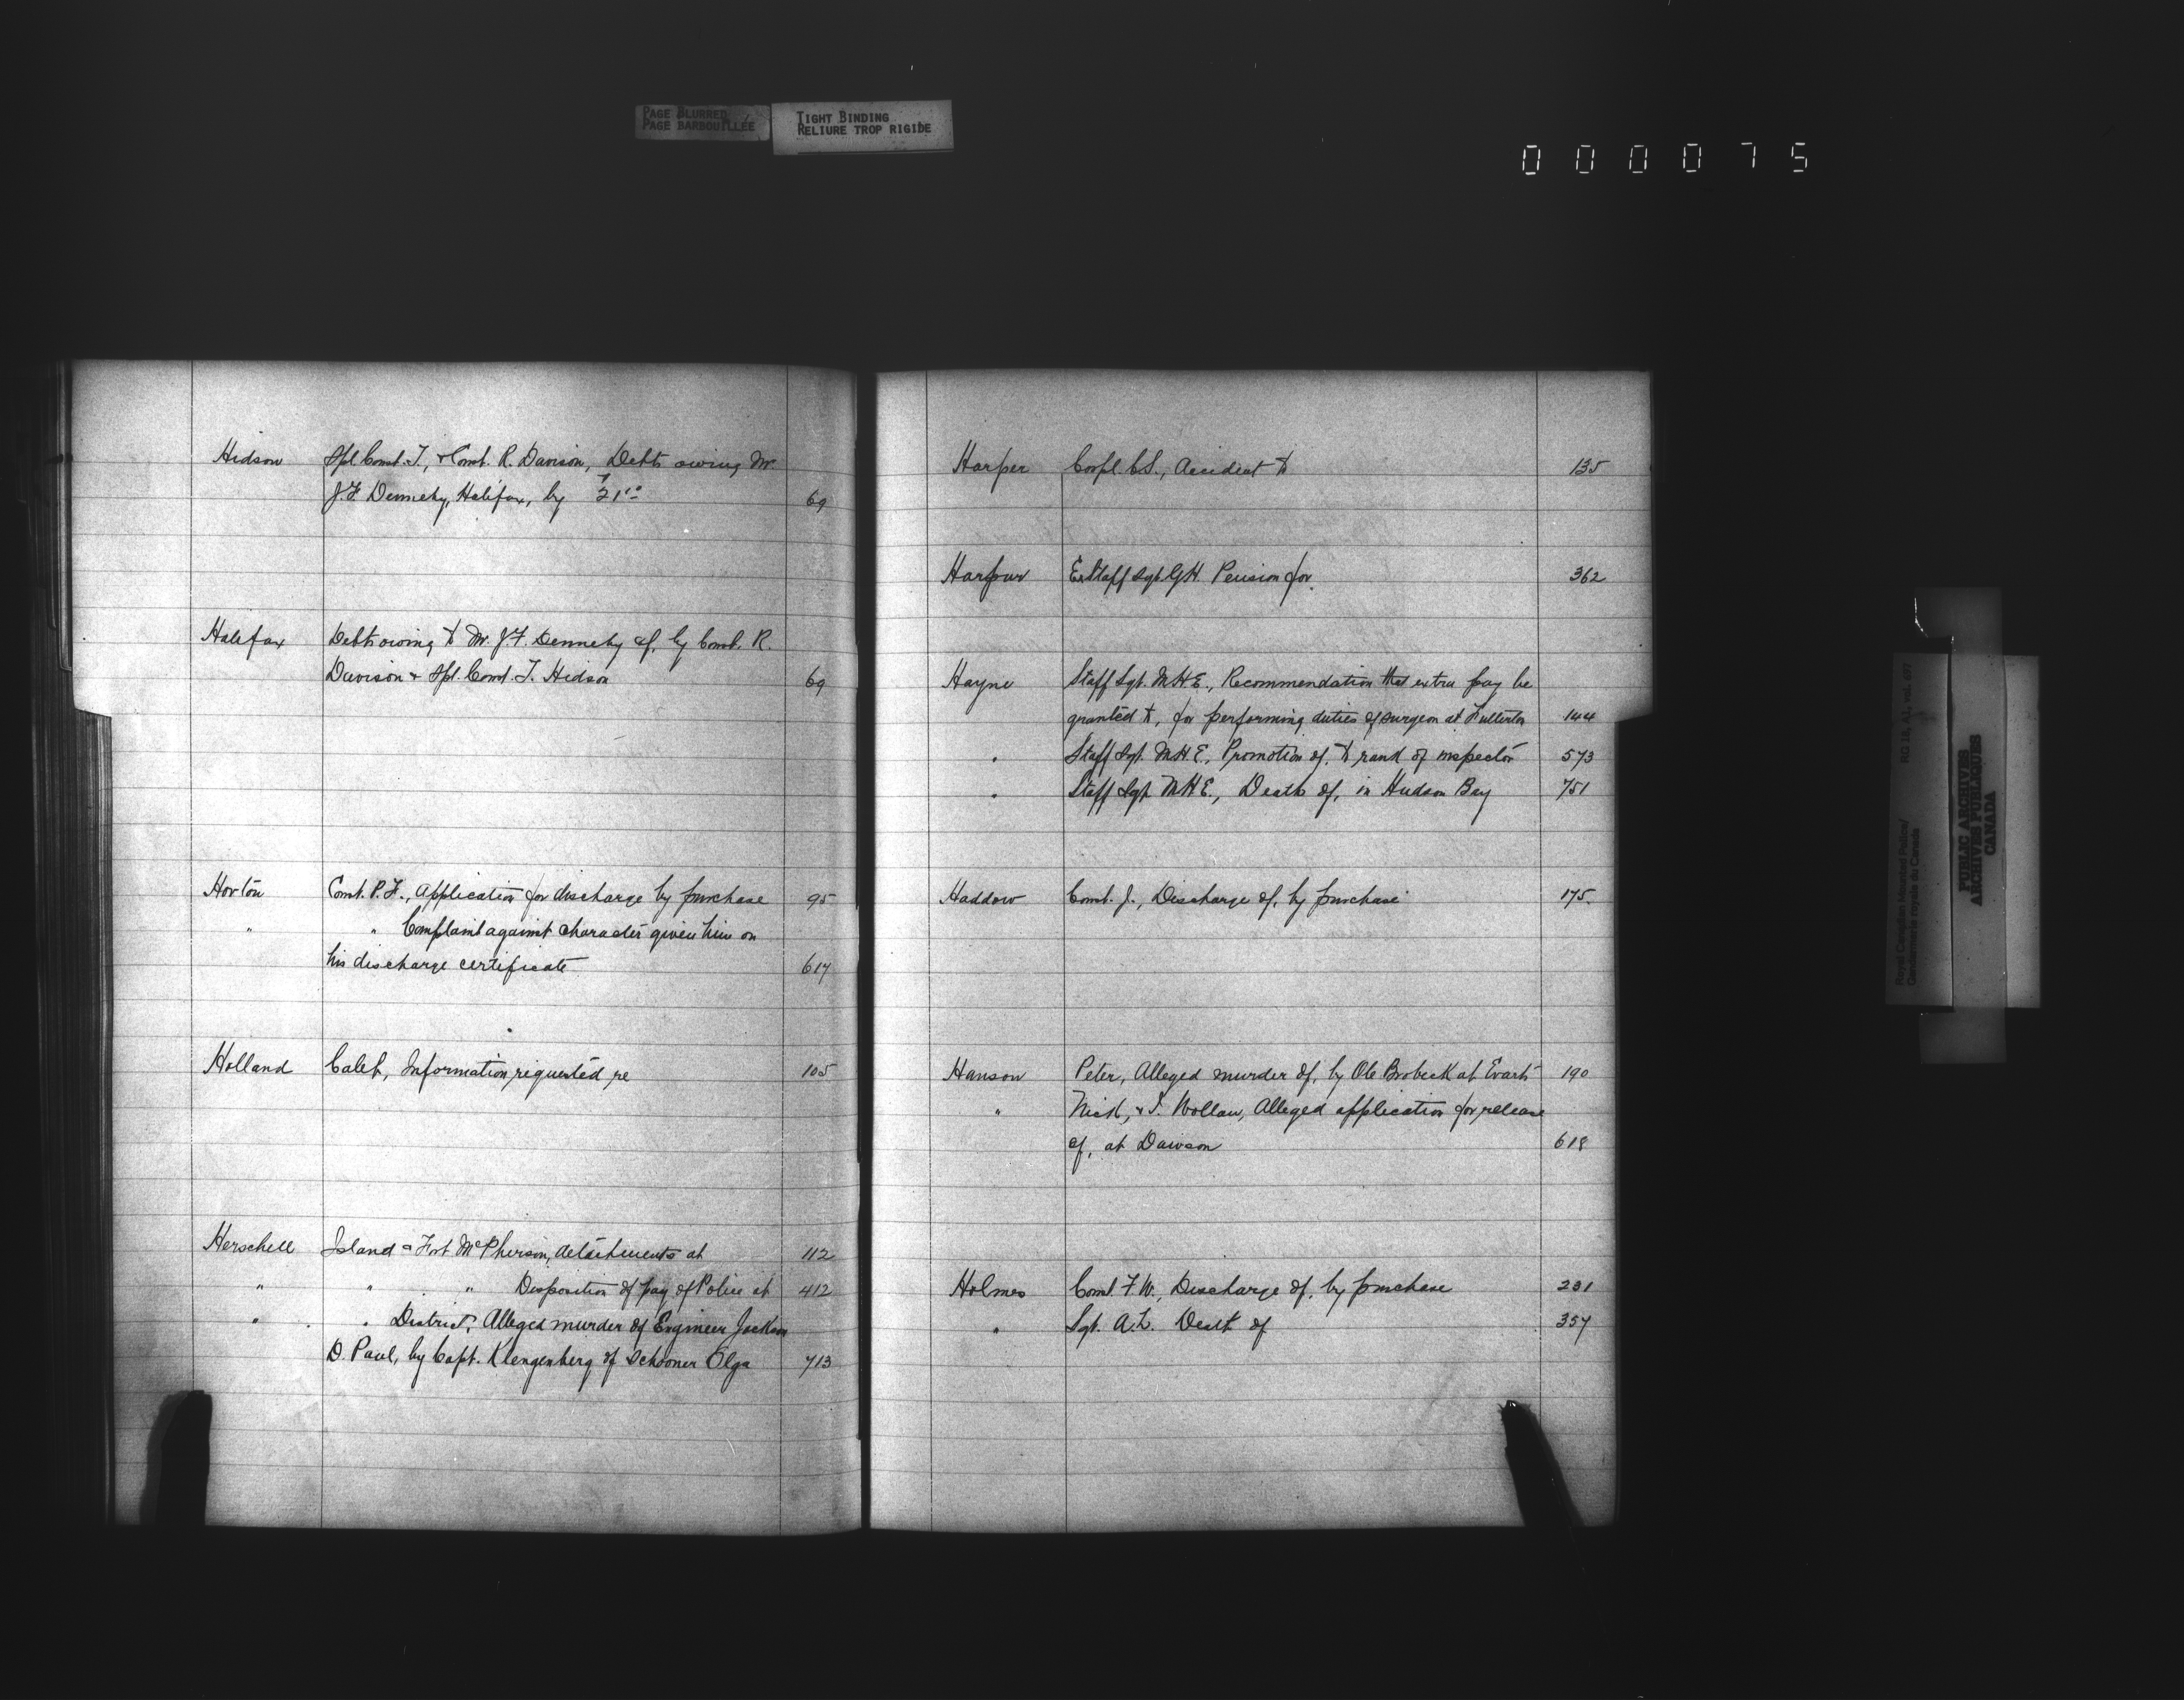 PAGE BLURRED
PAGE BARBOUILLÉE
TIGHT BINDING
RELIURE TROP RIGIDE
000075
Hidson Spl. Const. T., & Const. R. Davison, Debts owing Mr
J.F. Dennehy, Halifax, by 69
Halifax Debts owing to Mr. J.F. Dennehy of, by Const. R.
Davison & Spl. Const. T. Hidson 69
Horton Const. P.F., Application for discharge by purchase 95
" " Complaint against character given him on
his discharge certificate 617
Holland Caleb, Information requested re 105
Herschell Island & Fort McPherson, detachments at 112
" " " Disposition of pay of Police at 412
" " District, Alleged murder of Engineer Jackson
D. Paul, by Capt. Klengenberg of Schooner Olga 713
Harper Corpl. C.S., Accident to 135
Harpur Ex Staff Sgt. G.H. Pension for 362
Hayne Staff Sgt. M.H.E., Recommendation that extra pay be
granted to, for performing duties of surgeon at Fullerton 144
" Staff Sgt. M.H.E., Promotion of, to rank of inspector 573
" Staff Sgt. M.H.E., Death of, in Hudson Bay 751
Haddow Const. J., Discharge of, by purchase 175.
Hanson Peter, Alleged murder of, by Ole Brobeck at Evarts 190
" Nick, & T. Wollan, Alleged application for release
of, at Dawson 618
Holmes Const. F.W., Discharge of, by purchase 231
" Sgt. A.L. Death of 357
Royal Canadian Mounted Police/
Gendarmerie royale du Canada
RG 18, A1, vol.
PUBLIC ARCHIVES
ARCHIVES PUBLIQUES
CANADA